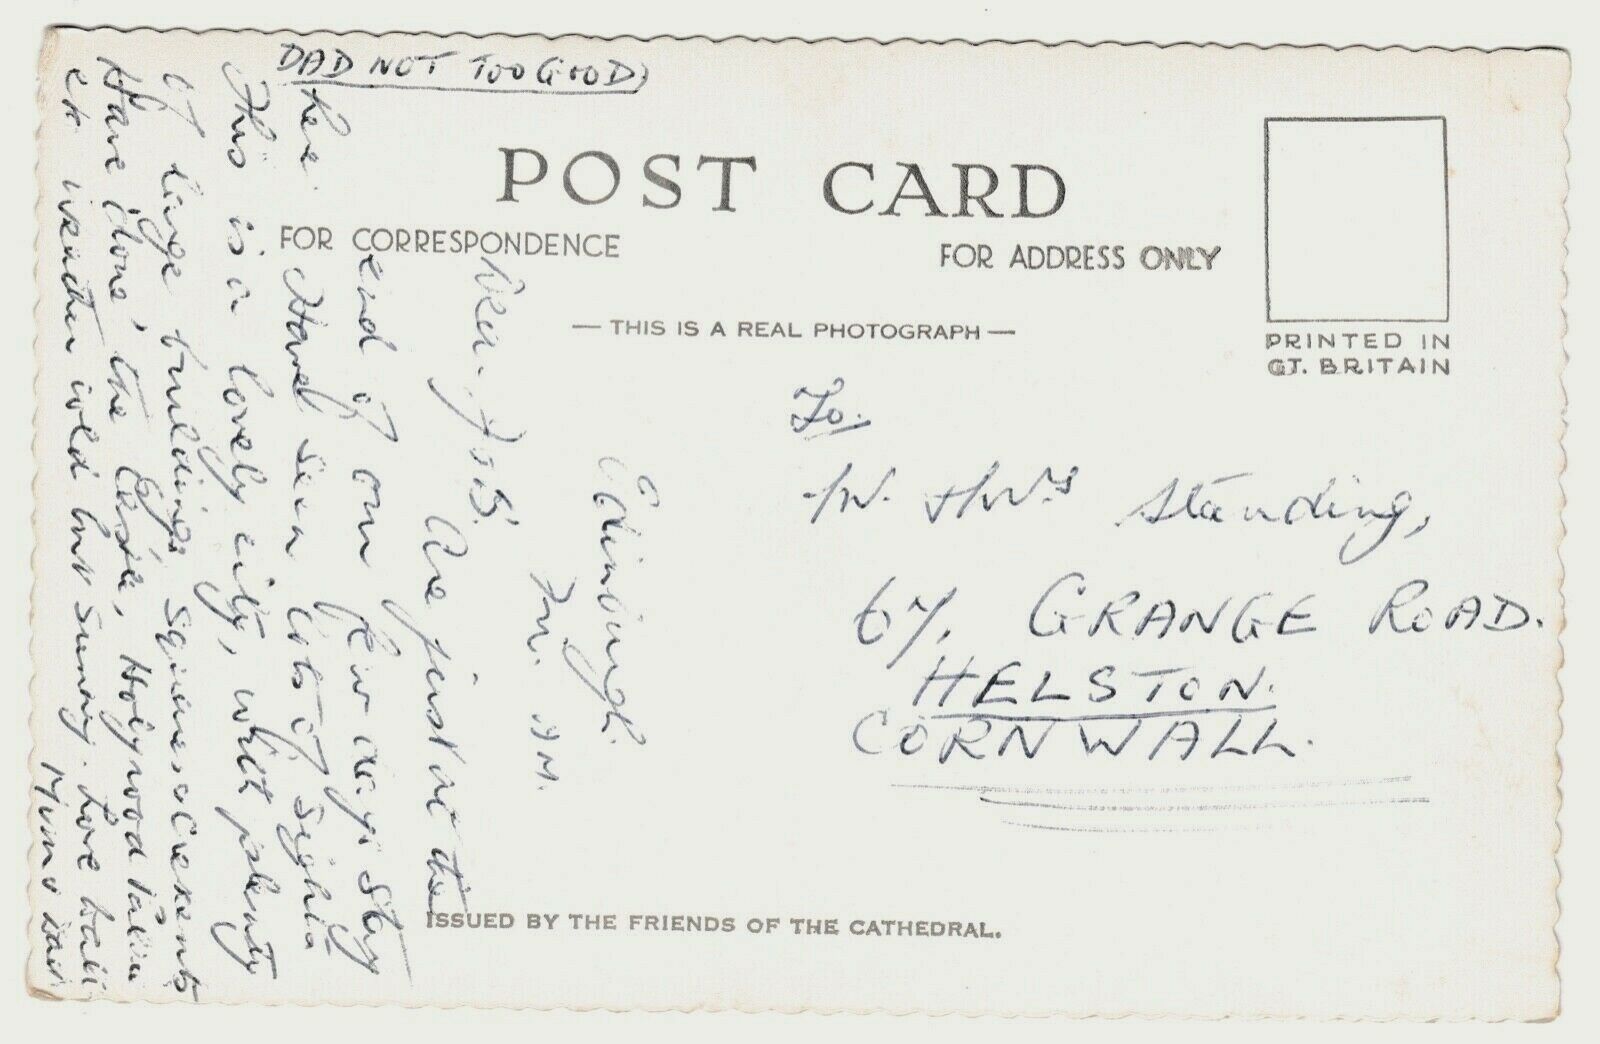 DAD NOT TOO GOOD)
POST CARD
FOR CORRESPONDENCE
FOR ADDRESS ONLY
— THIS IS A REAL PHOTOGRAPH —
PRINTED IN
GT. BRITAIN
Edinburgh.
Are just at the
end of our few days stay
here. Have seen lots of sights
This is a lovely city, with plenty
of large buildings Squares & Cresents
Have done, the Castle, Holyrood
weather cold but sunny. Love
Mum & Dad
To/
Standing,
67, GRANGE ROAD.
HELSTON.
CORNWALL.
ISSUED BY THE FRIENDS OF THE CATHEDRAL.